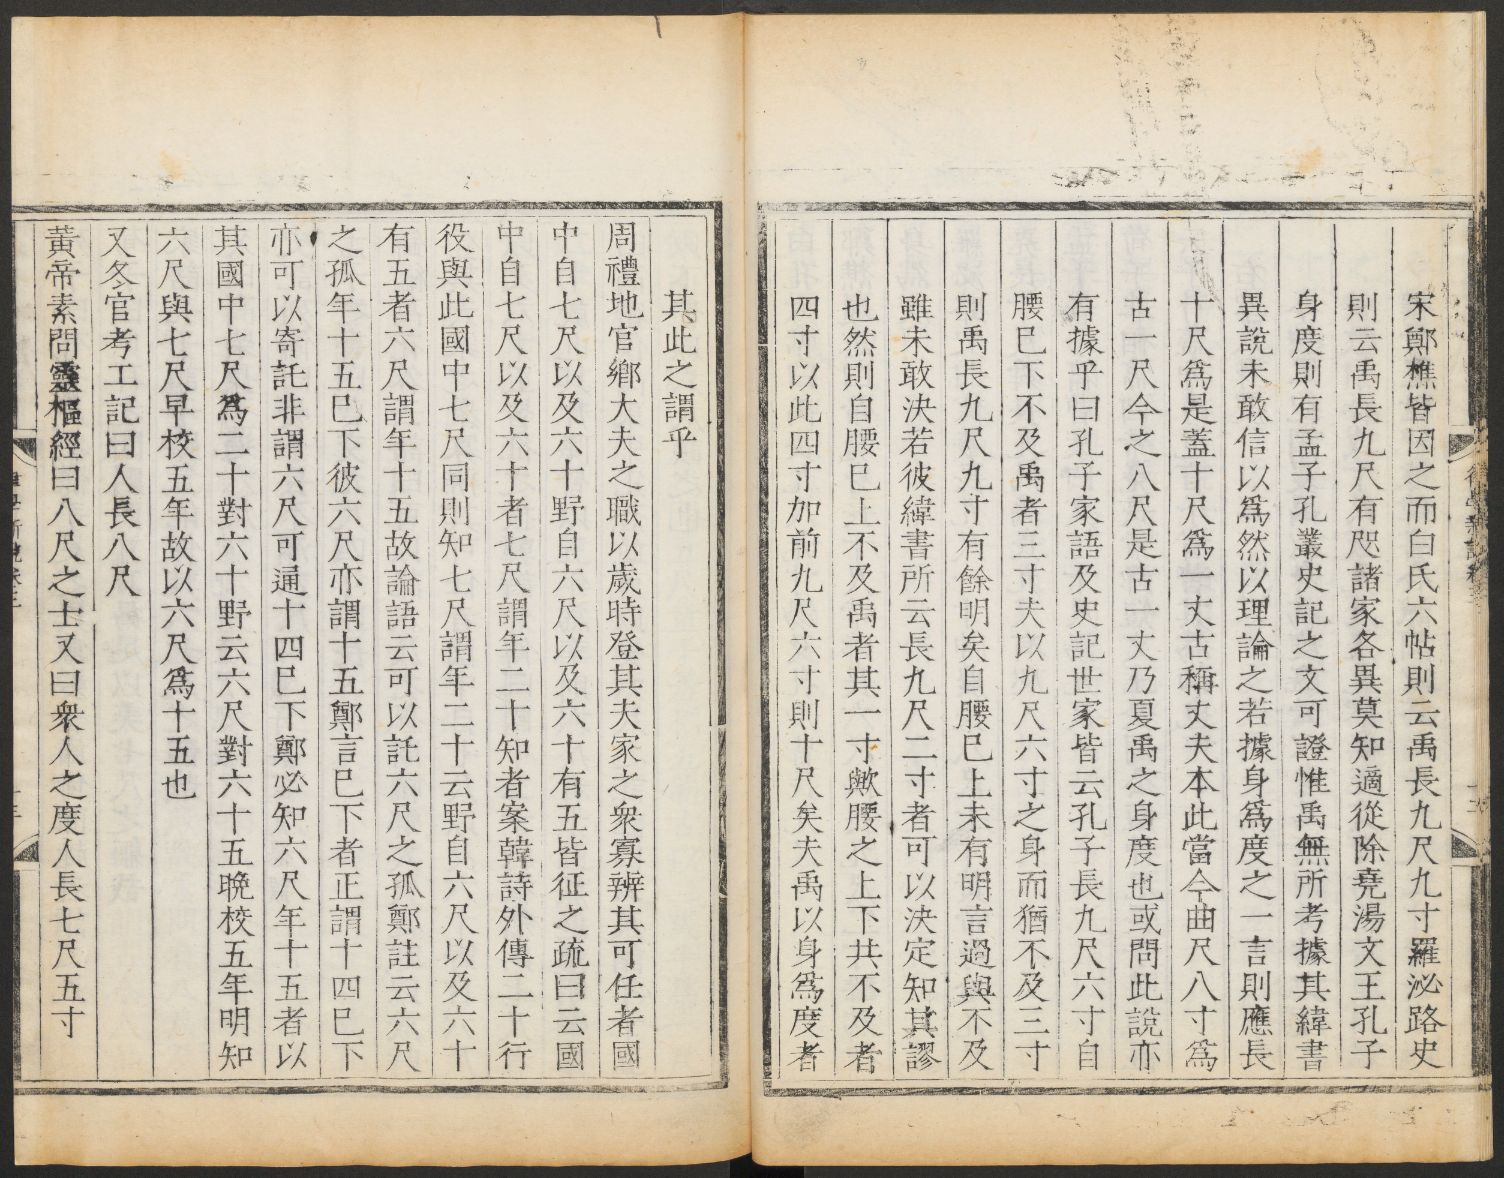 宋鄭樵皆因之而白氏六帖則云禹長九尺九寸羅泌路史
則云禹長九尺有咫諸家各異莫知適從除堯湯文王孔子
身度則有孟子孔叢史記之文可證惟禹無所考據其緯書
異說未敢信以爲然以理論之若據身爲度之一言則應長
十尺爲是蓋十尺爲一丈古稱丈夫本此當今曲尺八寸爲
古一尺今之八尺是古一丈乃夏禹之身度也或問此說亦
有據乎曰孔子家語及史記世家皆云孔子長九尺六寸自
腰巳下不及禹者三寸夫以九尺六寸之身而猶不及三寸
則禹長九尺九寸有餘明矣自腰巳上未有明言過與不及
雖未敢決若彼緯書所云長九尺二寸者可以決定知其謬
也然則自腰巳上不及禹者其一寸歟腰之上下共不及者
四寸以此四寸加前九尺六寸則十尺矣夫禹以身爲度者
其此之謂乎
周禮地官鄉大夫之職以歲時登其夫家之衆寡辨其可任者國
中自七尺以及六十野自六尺以及六十有五皆征之疏曰云國
中自七尺以及六十者七尺謂年二十知者案韓詩外傳二十行
役與此國中七尺同則知七尺謂年二十云野自六尺以及六十
有五者六尺謂年十五故論語云可以託六尺之孤鄭註云六尺
之孤年十五巳下彼六尺亦謂十五鄭言巳下者正謂十四巳下
亦可以寄託非謂六尺可通十四巳下鄭必知六尺年十五者以
其國中七尺爲二十對六十野云六尺對六十五晚校五年明知
六尺與七尺早校五年故以六尺爲十五也
又冬官考工記曰人長八尺
黃帝素問靈樞經曰八尺之士又曰衆人之度人長七尺五寸